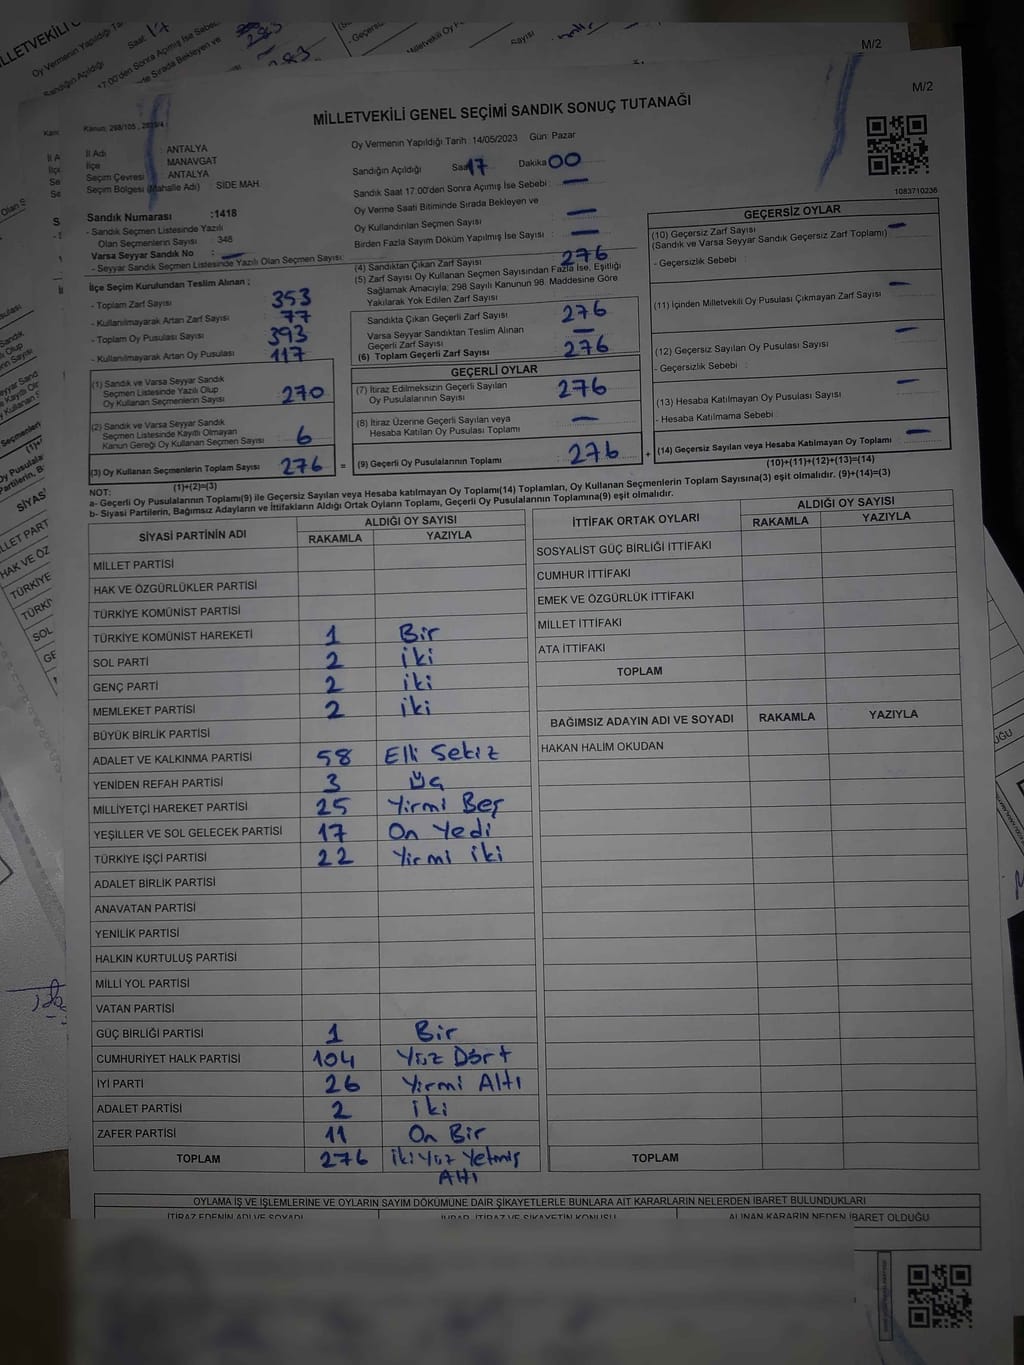 M/2
M/2
MİLLETVEKİLİ GENEL SEÇİMİ SANDIK SONUÇ TUTANAĞI
Kanun: 298/105
İl Adı : ANTALYA
İlçe : MANAVGAT
Seçim Çevresi : ANTALYA
Seçim Bölgesi (Mahalle Adı) : SİDE MAH.
Oy Vermenin Yapıldığı Tarih : 14/05/2023 Gün: Pazar
Sandığın Açıldığı Saat 17 Dakika 00
Sandık Saat 17:00'den Sonra Açımış İse Sebebi : —
Oy Verme Saati Bitiminde Sırada Bekleyen ve
Oy Kullandırılan Seçmen Sayısı : —
Birden Fazla Sayım Döküm Yapılmış İse Sayısı : —
1083710236
Sandık Numarası :1418
- Sandık Seçmen Listesinde Yazılı
Olan Seçmenlerin Sayısı : 346
Varsa Seyyar Sandık No : —
- Seyyar Sandık Seçmen Listesinde Yazılı Olan Seçmen Sayısı:
İlçe Seçim Kurulundan Teslim Alınan ;
- Toplam Zarf Sayısı 353
- Kullanılmayarak Artan Zarf Sayısı : 77
- Toplam Oy Pusulası Sayısı : 393
- Kullanılmayarak Artan Oy Pusulası : 117
(1) Sandık ve Varsa Seyyar Sandık
Seçmen Listesinde Yazılı Olup
Oy Kullanan Seçmenlerin Sayısı : 270
(2) Sandık ve Varsa Seyyar Sandık
Seçmen Listesinde Kayıtlı Olmayan
Kanun Gereği Oy Kullanan Seçmen Sayısı : 6
(3) Oy Kullanan Seçmenlerin Toplam Sayısı 276 =
(1)+(2)=(3)
(4) Sandıktan Çıkan Zarf Sayısı : 276
(5) Zarf Sayısı Oy Kullanan Seçmen Sayısından Fazla İse, Eşitliği
Sağlamak Amacıyla; 298 Sayılı Kanunun 98. Maddesine Göre
Yakılarak Yok Edilen Zarf Sayısı :
Sandıkta Çıkan Geçerli Zarf Sayısı : 276
Varsa Seyyar Sandıktan Teslim Alınan
Geçerli Zarf Sayısı : —
(6) Toplam Geçerli Zarf Sayısı : 276
GEÇERLİ OYLAR
(7) İtiraz Edilmeksizin Geçerli Sayılan
Oy Pusulalarının Sayısı : 276
(8) İtiraz Üzerine Geçerli Sayılan veya
Hesaba Katılan Oy Pusulası Toplamı : —
(9) Geçerli Oy Pusulalarının Toplamı : 276 +
GEÇERSİZ OYLAR
(10) Geçersiz Zarf Sayısı : —
(Sandık ve Varsa Seyyar Sandık Geçersiz Zarf Toplamı)
- Geçersizlik Sebebi :
(11) İçinden Milletvekili Oy Pusulası Çıkmayan Zarf Sayısı : —
(12) Geçersiz Sayılan Oy Pusulası Sayısı : —
- Geçersizlik Sebebi :
(13) Hesaba Katılmayan Oy Pusulası Sayısı : —
- Hesaba Katılmama Sebebi :
(14) Geçersiz Sayılan veya Hesaba Katılmayan Oy Toplamı : —
(10)+(11)+(12)+(13)=(14)
NOT:
a- Geçerli Oy Pusulalarının Toplamı(9) ile Geçersiz Sayılan veya Hesaba katılmayan Oy Toplamı(14) Toplamları, Oy Kullanan Seçmenlerin Toplam Sayısına(3) eşit olmalıdır. (9)+(14)=(3)
b- Siyasi Partilerin, Bağımsız Adayların ve İttifakların Aldığı Ortak Oyların Toplamı, Geçerli Oy Pusulalarının Toplamına(9) eşit olmalıdır.
SİYASİ PARTİNİN ADI ALDIĞI OY SAYISI
RAKAMLA YAZIYLA
MİLLET PARTİSİ
HAK VE ÖZGÜRLÜKLER PARTİSİ
TÜRKİYE KOMÜNİST PARTİSİ
TÜRKİYE KOMÜNİST HAREKETİ 1 Bir
SOL PARTİ 2 iki
GENÇ PARTİ 2 iki
MEMLEKET PARTİSİ 2 iki
BÜYÜK BİRLİK PARTİSİ
ADALET VE KALKINMA PARTİSİ 58 Elli Sekiz
YENİDEN REFAH PARTİSİ 3 Üç
MİLLİYETÇİ HAREKET PARTİSİ 25 Yirmi Beş
YEŞİLLER VE SOL GELECEK PARTİSİ 17 On Yedi
TÜRKİYE İŞÇİ PARTİSİ 22 Yirmi iki
ADALET BİRLİK PARTİSİ
ANAVATAN PARTİSİ
YENİLİK PARTİSİ
HALKIN KURTULUŞ PARTİSİ
MİLLİ YOL PARTİSİ
VATAN PARTİSİ
GÜÇ BİRLİĞİ PARTİSİ 1 Bir
CUMHURİYET HALK PARTİSİ 104 Yüz Dört
İYİ PARTİ 26 Yirmi Altı
ADALET PARTİSİ 2 iki
ZAFER PARTİSİ 11 On Bir
TOPLAM 276 iki Yüz Yetmiş
Altı
İTTİFAK ORTAK OYLARI ALDIĞI OY SAYISI
RAKAMLA YAZIYLA
SOSYALİST GÜÇ BİRLİĞİ İTTİFAKI
CUMHUR İTTİFAKI
EMEK VE ÖZGÜRLÜK İTTİFAKI
MİLLET İTTİFAKI
ATA İTTİFAKI
TOPLAM
BAĞIMSIZ ADAYIN ADI VE SOYADI RAKAMLA YAZIYLA
HAKAN HALİM OKUDAN
TOPLAM
OYLAMA İŞ VE İŞLEMLERİNE VE OYLARIN SAYIM DÖKÜMÜNE DAİR ŞİKAYETLERLE BUNLARA AİT KARARLARIN NELERDEN İBARET BULUNDUKLARI
İTİRAZ EDENİN ADI VE SOYADI İTİRAZ VE ŞİKAYETİN KONUSU ALINAN KARARIN NEDEN İBARET OLDUĞU